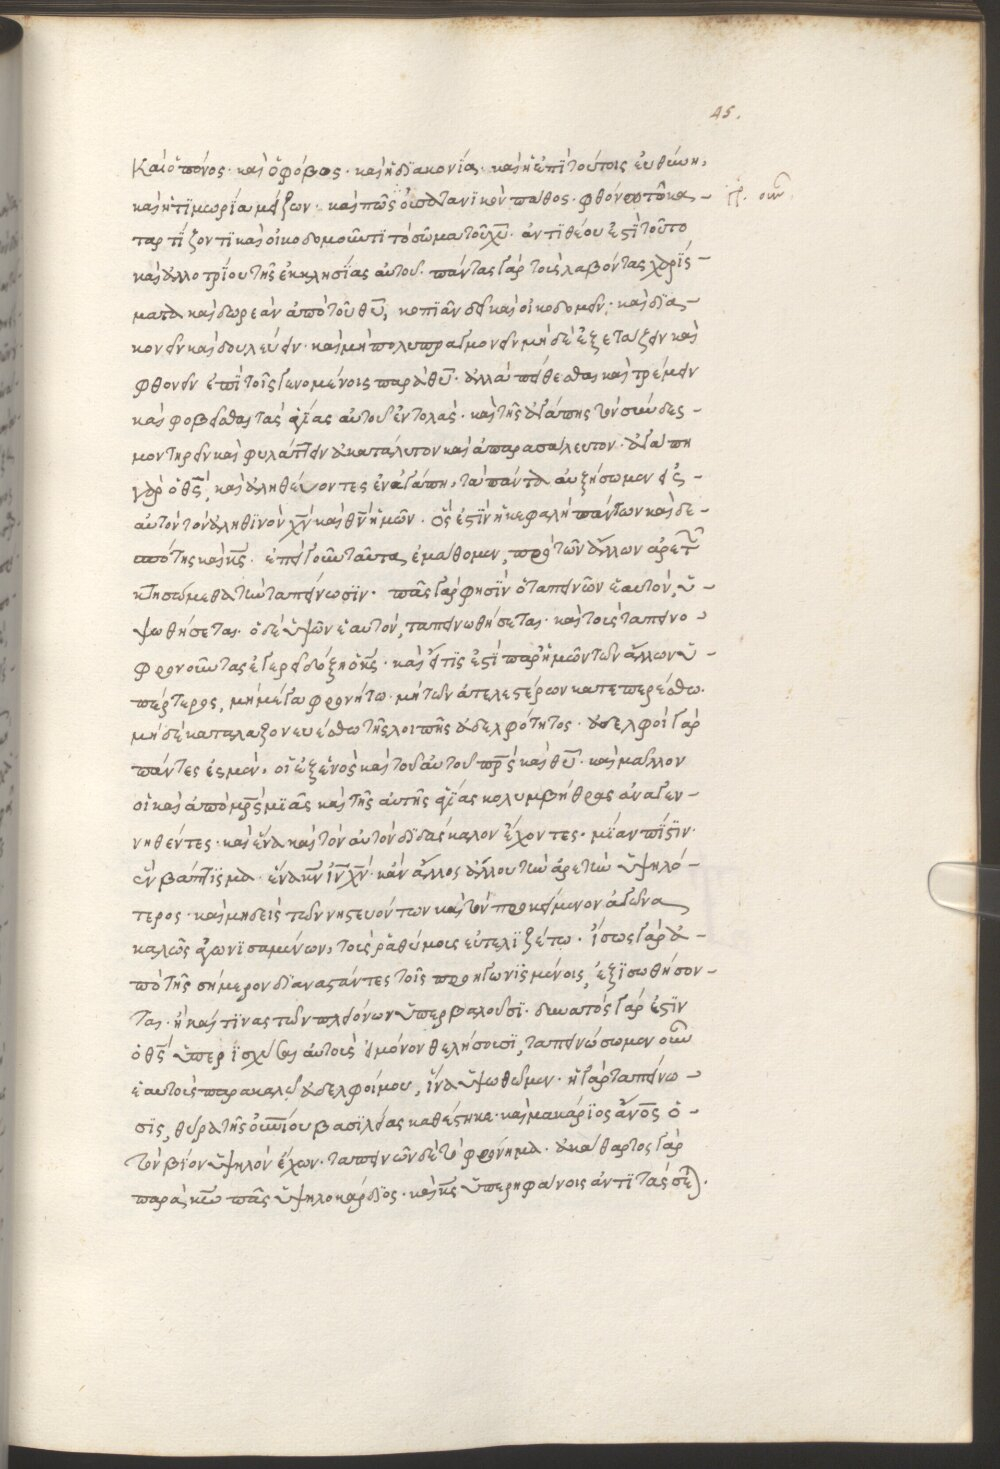 45.
Καὶ ὁ πόνος· καὶ ὁ φόβος· καὶ ἡ διακονία· καὶ ἡ ἐπὶ τούτοις εὐθύνη,
καὶ ἡ τιμωρία μείζων· καὶ πῶς οὐ σατανϊκὸν πάθος· φθόνου τὸ κα-
γρ. οὖν
ταρτίζοντι καὶ οἰκοδομοῦντι τὸ σῶμα τοῦ χυ̅· ἀντιθέου ἐστὶ τοῦτο
καὶ ἀλλοτρίου τῆς ἐκκλησίας αὐτοῦ· πάντας γὰρ τοὺς λαβόντας χαρίσ-
ματα καὶ δωρεὰν ἀπὸ τοῦ θυ̅, κοπιᾶν δεῖ καὶ οἰκοδομεῖν· καὶ δια-
κονεῖν καὶ δουλεύειν· καὶ μὴ πολυπραγμονεῖν μὴ δὲ ἐξετάζειν καὶ
φθονεῖν ἐπὶ τοῖς γενομένοις παρὰ θυ̅· ἀλλὰ πείθεσθαι καὶ τρέμειν
καὶ φοβεῖσθαι τὰς ἁγίας αὐτοῦ ἐντολάς· καὶ τῆς ἀγάπης τὸν σύνδεσ-
μον τηρεῖν καὶ φυλάττειν ἀκατάλυτον καὶ ἀπαρασάλευτον· ἀγάπη
γὰρ ὁ θς̅, καὶ ἀληθεύοντες ἐν ἀγάπῃ, τὰ πάντα αὐξήσωμεν εἰς
αὐτὸν τὸν ἀληθινὸν χν̅ καὶ θν̅ ἡμῶν· ὅς ἐστὶν ἡ κεφαλὴ πάντων καὶ δε-
σπότης καὶ κς̅· ἐπεὶ γοῦν ταῦτα ἐμάθομεν, πρὸ τῶν ἄλλων ἀρετῶν
κτησώμεθα τὴν ταπείνωσιν· πᾶς γὰρ φησὶν ὁ ταπεινῶν ἑαυτὸν, ὑ-
ψωθήσεται· ὁ δὲ ὑψῶν ἑαυτὸν, ταπεινωθήσεται· καὶ τοὺς ταπεινο-
φρονοῦντας ἐγερεῖ δόξῃ ὁ κς̅· καὶ εἴ τις ἐστὶ παρ' ἡμῶν τῶν ἄλλων ὑ-
πέρτερος, μὴ μέγα φρονήτω· μὴ τῶν ἀτελεστέρων κατεπερέσθω·
μὴ δὲ καταλαζονευέσθω τῆς λοιπῆς ἀδελφότητος· ἀδελφοὶ γὰρ
πάντες ἐσμὲν, οἱ ἐξ ἑνὸς καὶ τοῦ αὐτοῦ πρς̅ καὶ θυ̅· καὶ μᾶλλον
οἱ καὶ ἀπὸ μρς̅ μιᾶς καὶ τῆς αὐτῆς ἁγίας κολυμβήθρας ἀναγεν-
νηθέντες· καὶ ἕνα καὶ τὸν αὐτὸν διδάσκαλον ἔχοντες· μίαν πίστιν·
ἓν βάπτισμα· ἕνα κν̅ ιν̅ χν̅· κἂν ἄλλος ἄλλου τὴν ἀρετὴν ὑψηλό-
τερος· καὶ μηδεὶς τῶν νηστευόντων καὶ τὸν προκείμενον ἀγῶνα
καλῶς ἀγωνισαμένων, τοὺς ῥαθύμους εὐτελιζέτω· ἴσως γὰρ ἀ-
πὸ τῆς σήμερον διαναστάντες τοῖς προηγωνισμένοις, ἐξισωθήσον-
ται· ἢ καί τινας τῶν πλειόνων ὑπερβαλοῦσι· δυνατὸς γάρ ἐστιν
ὁ θς̅ ὑπερισχῦσαι αὐτοὺς εἰ μόνον θελήσουσι, ταπεινώσωμεν οὖν
ἑαυτοὺς παρακαλῶ ἀδελφοί μου, ἵνα ὑψωθῶμεν· ἡ γὰρ ταπείνω-
σις, θύρα τῆς οὐνίου βασιλείας καθέστηκε· καὶ μακάριος ἄνος̅ ὁ
τὸν βίον ὑψηλὸν ἔχων· ταπεινῶν δὲ τὸ φρόνημα· ἀκάθαρτος γὰρ
παρὰ κω̅ πᾶς ὑψηλοκάρδιος· καὶ κς̅ ὑπερηφάνοις ἀντιτάσσε).